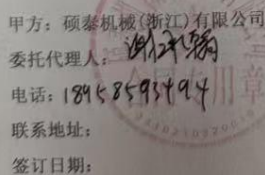 甲方：硕泰机械(浙江)有限公司
委托代理人：
电话：18958593494
联系地址：
签订日期：